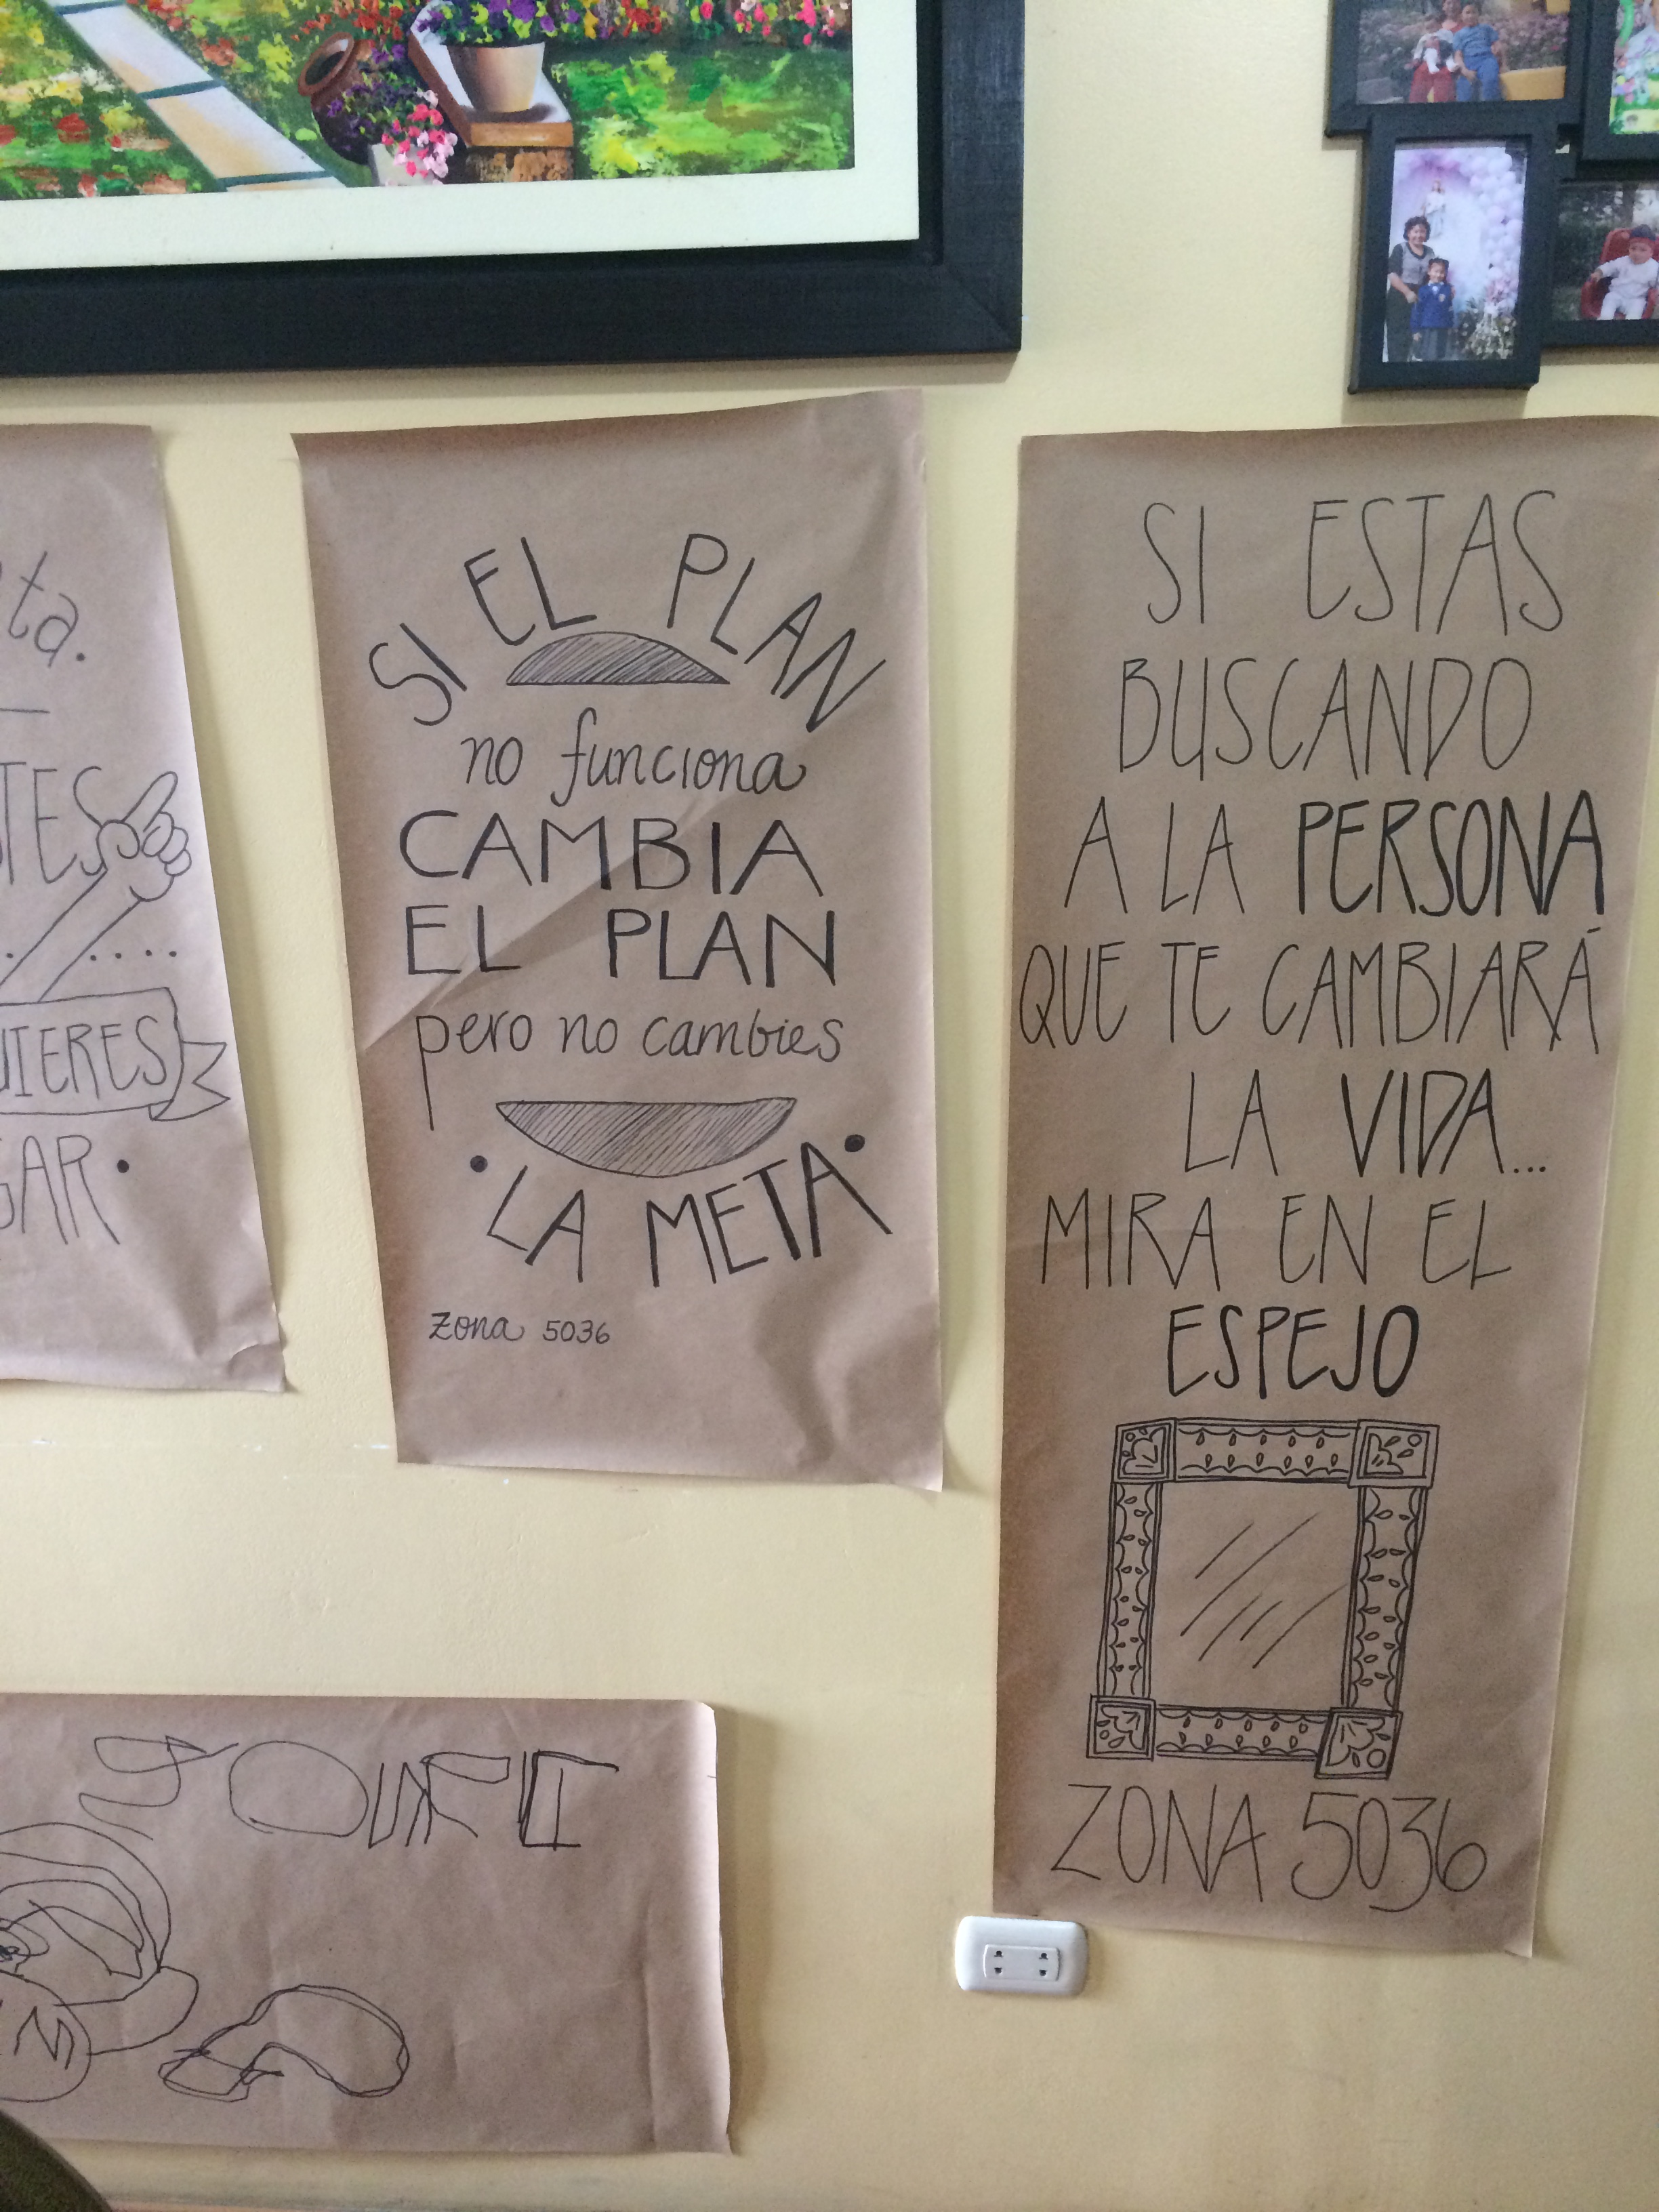 ta.
TES
UIERES
GAR.
SI EL PLAN
no funciona
CAMBIA
EL PLAN
pero no cambies
• LA META •
zona 5036
SI ESTAS
BUSCANDO
A LA PERSONA
QUE TE CAMBIARÁ
LA VIDA...
MIRA EN EL
ESPEJO
ZONA 5036